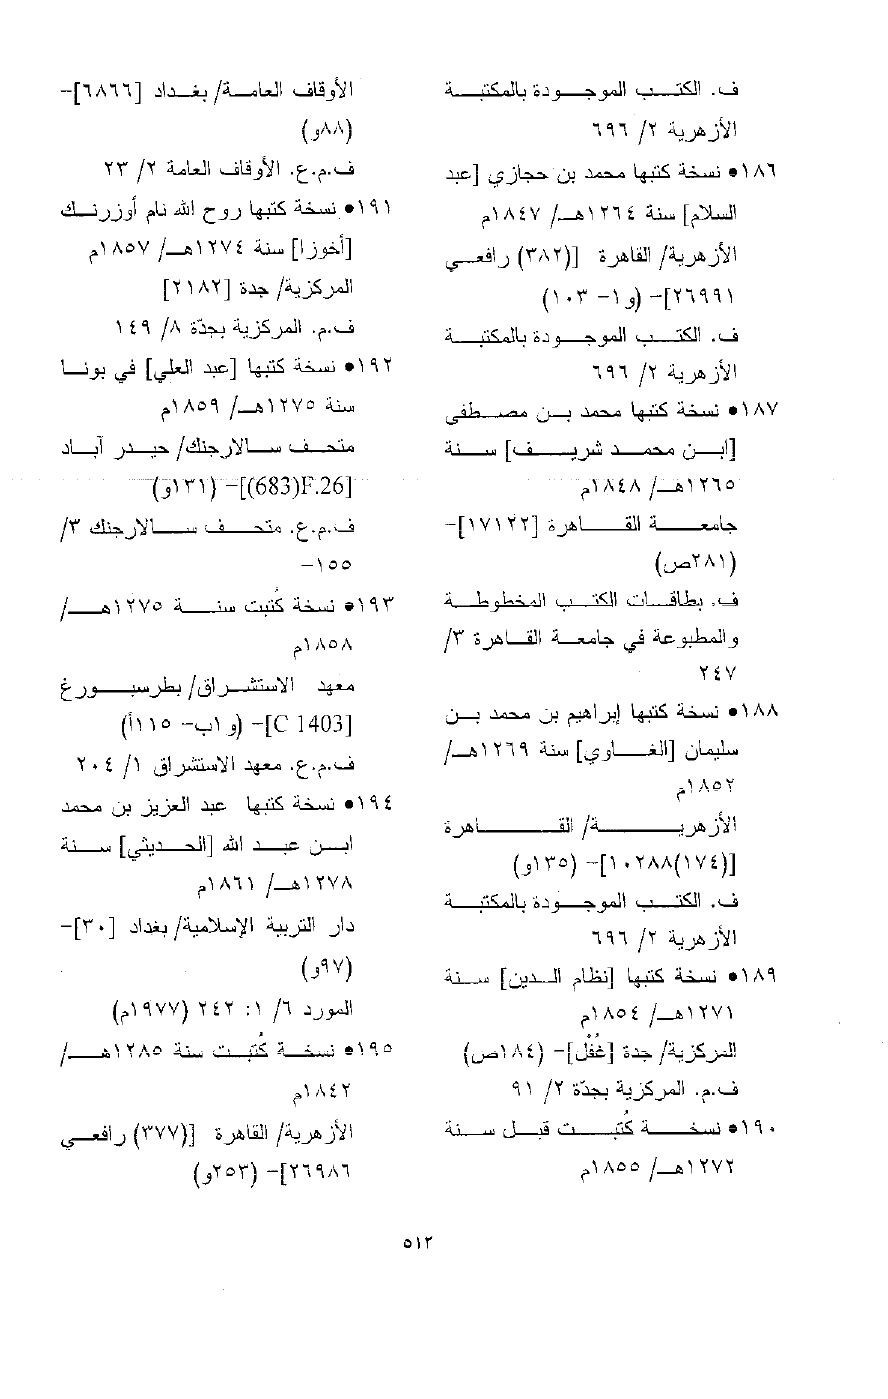 ف. الكتب الموجودة بالمكتبة
الأزهرية ٢/ ٦٩٦
١٨٦• نسخة كتبها محمد بن حجازي [عبد
السلام] سنة ١٢٦٤هـ/ ١٨٤٧م
الأزهرية/ القاهرة [(٣٨٢) رافعي
٢٦٩٩١]- (و١- ١٠٣)
ف. الكتب الموجودة بالمكتبة
الأزهرية ٢/ ٦٩٦
١٨٧• نسخة كتبها محمد بن مصطفى
[ابن محمد شريف] سنة
١٢٦٥هـ/ ١٨٤٨م
جامعة القاهرة [١٧١٢٢]-
(٢٨١ص)
ف. بطاقات الكتب المخطوطة
والمطبوعة في جامعة القاهرة ٣/
٢٤٧
١٨٨• نسخة كتبها إبراهيم بن محمد بن
سليمان [الغاوي] سنة ١٢٦٩هـ/
١٨٥٢م
الأزهرية/ القاهرة
[(١٧٤)١٠٢٨٨]- (١٣٥و)
ف. الكتب الموجودة بالمكتبة
الأزهرية ٢/ ٦٩٦
١٨٩• نسخة كتبها [نظام الدين] سنة
١٢٧١هـ/ ١٨٥٤م
المركزية/ جدة [غُفْل]- (١٨٤ص)
ف.م. المركزية بجدّة ٢/ ٩١
١٩٠• نسخة كُتبت قبل سنة
١٢٧٢هـ/ ١٨٥٥م
الأوقاف العامة/ بغداد [٦٨٦٦]-
(٨٨و)
ف.م.ع. الأوقاف العامة ٢/ ٢٣
١٩١• نسخة كتبها روح الله نام أوزرنك
[أخوزا] سنة ١٢٧٤هـ/ ١٨٥٧م
المركزية/ جدة [٢١٨٢]
ف.م. المركزية بجدّة ٨/ ١٤٩
١٩٢• نسخة كتبها [عبد العلي] في بونا
سنة ١٢٧٥هـ/ ١٨٥٩م
متحف سالارجنك/ حيدر آباد
[(683)F.26]- (١٣١و)
ف.م.ع. متحف سالارجنك ٣/
١٥٥-
١٩٣• نسخة كُتبت سنة ١٢٧٥هـ/
١٨٥٨م
معهد الاستشراق/ بطرسبورغ
[C 1403]- (و١ب- ١١٥أ)
ف.م.ع. معهد الاستشراق ١/ ٢٠٤
١٩٤• نسخة كتبها عبد العزيز بن محمد
ابن عبد الله [الحديثي] سنة
١٢٧٨هـ/ ١٨٦١م
دار التربية الإسلامية/ بغداد [٣٠]-
(٩٧و)
المورد ٦/ ١: ٢٤٢ (١٩٧٧م)
١٩٥• نسخة كُتبت سنة ١٢٨٥هـ/
١٨٤٢م
الأزهرية/ القاهرة [(٣٧٧) رافعي
٢٦٩٨٦]- (٢٥٣و)
٥١٢